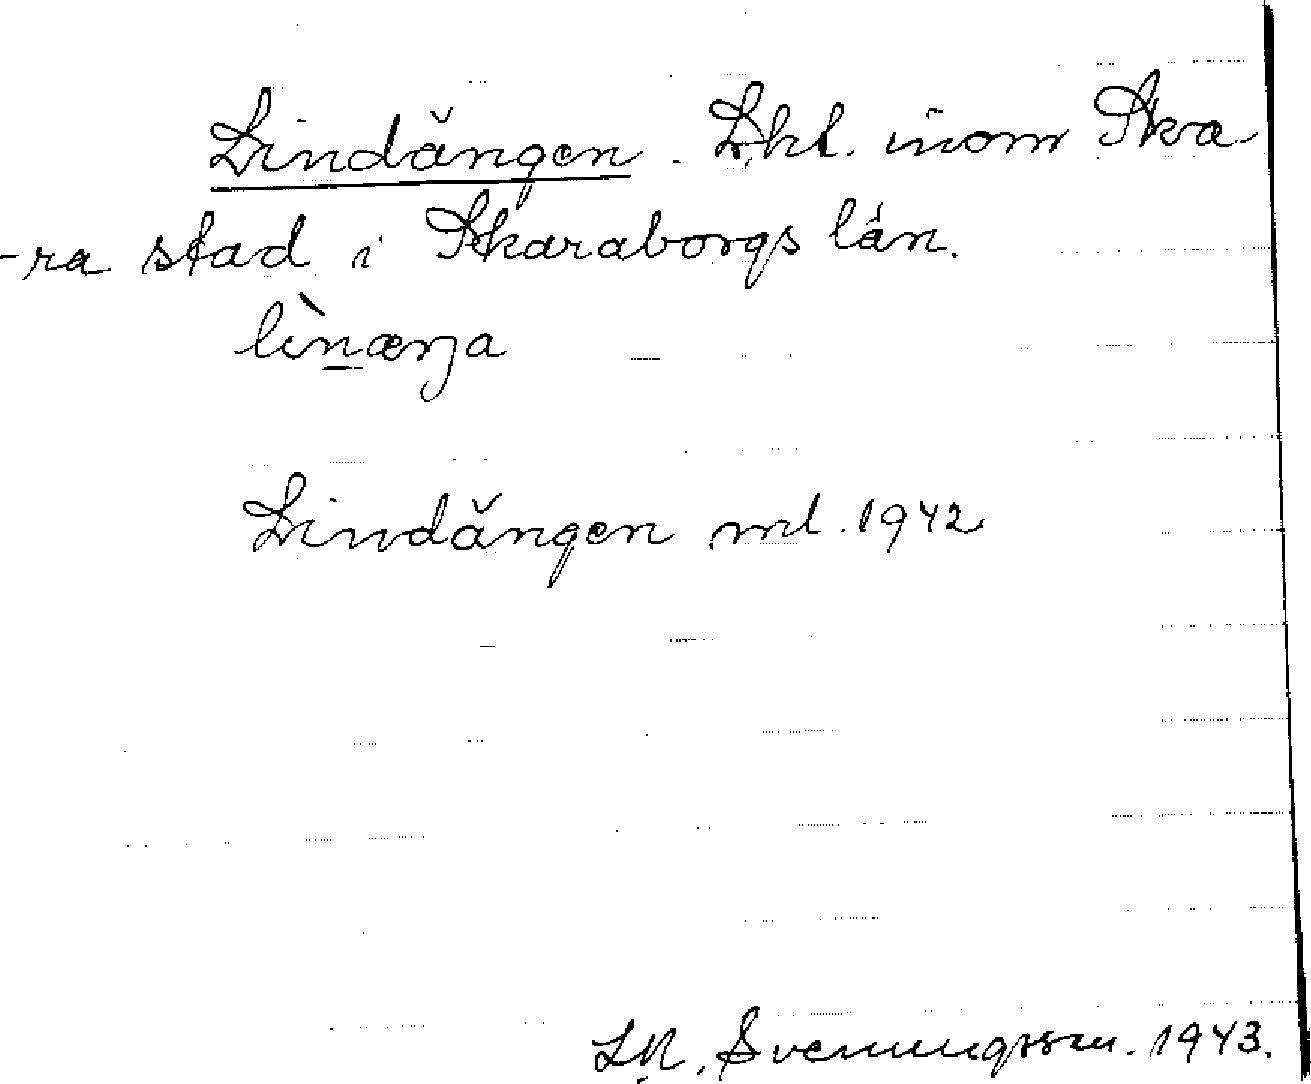 Lindängen. Lht. inom Ska
-ra stad i Skaraborgs län.
lìnæŋa
Lindängen ml. 1942
Svenungsson. 1943.